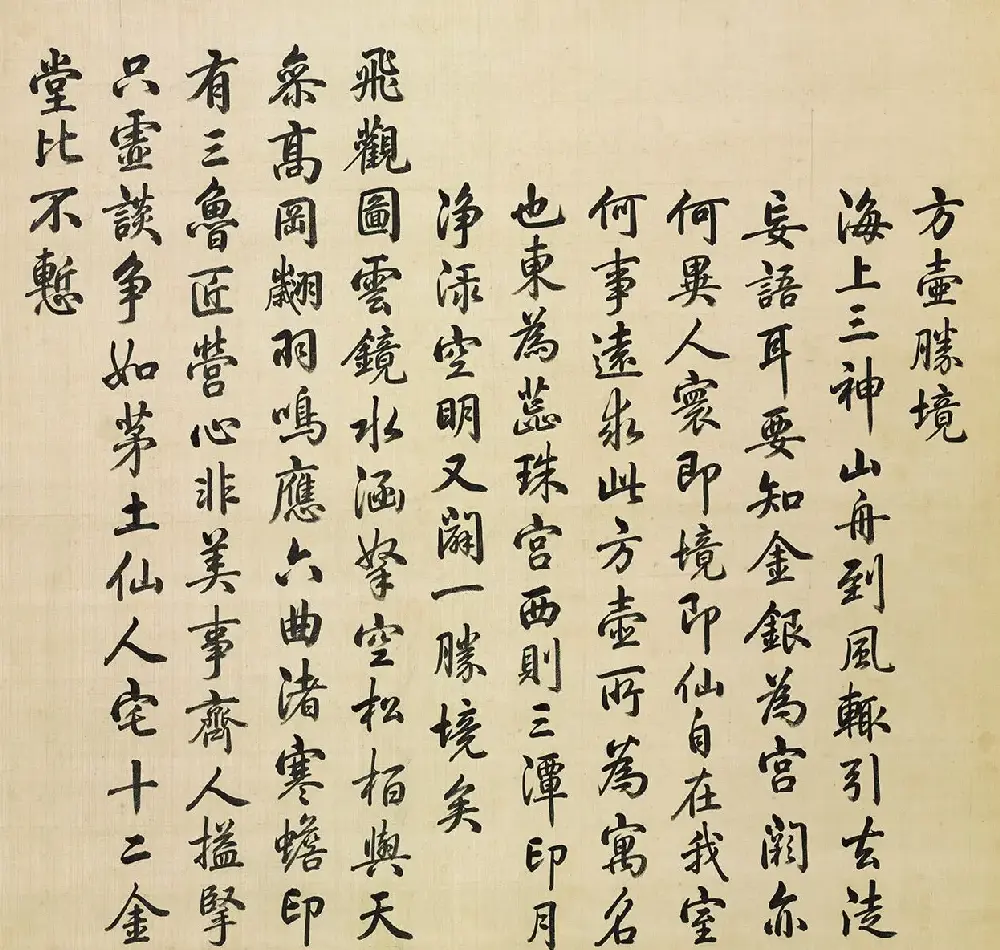 方壺勝境
海上三神山舟到風輙引去徒
妄語耳要知金銀為宮闕亦
何異人寰即境即仙自在我室
何事遠求此方壺所為寓名
也東為蕊珠宮西則三潭印月
淨渌空明又闢一勝境矣
飛觀圖雲鏡水涵拏空松柏與天
叅高岡翽羽鳴應六曲渚寒蟾印
有三魯匠營心非美事齊人搤掔
只虛談爭如茅土仙人宅十二金
堂比不慙